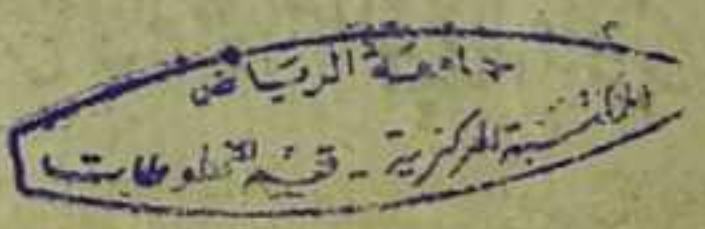 جامعة الرياض
المكتبة المركزية - قسم المخطوطات